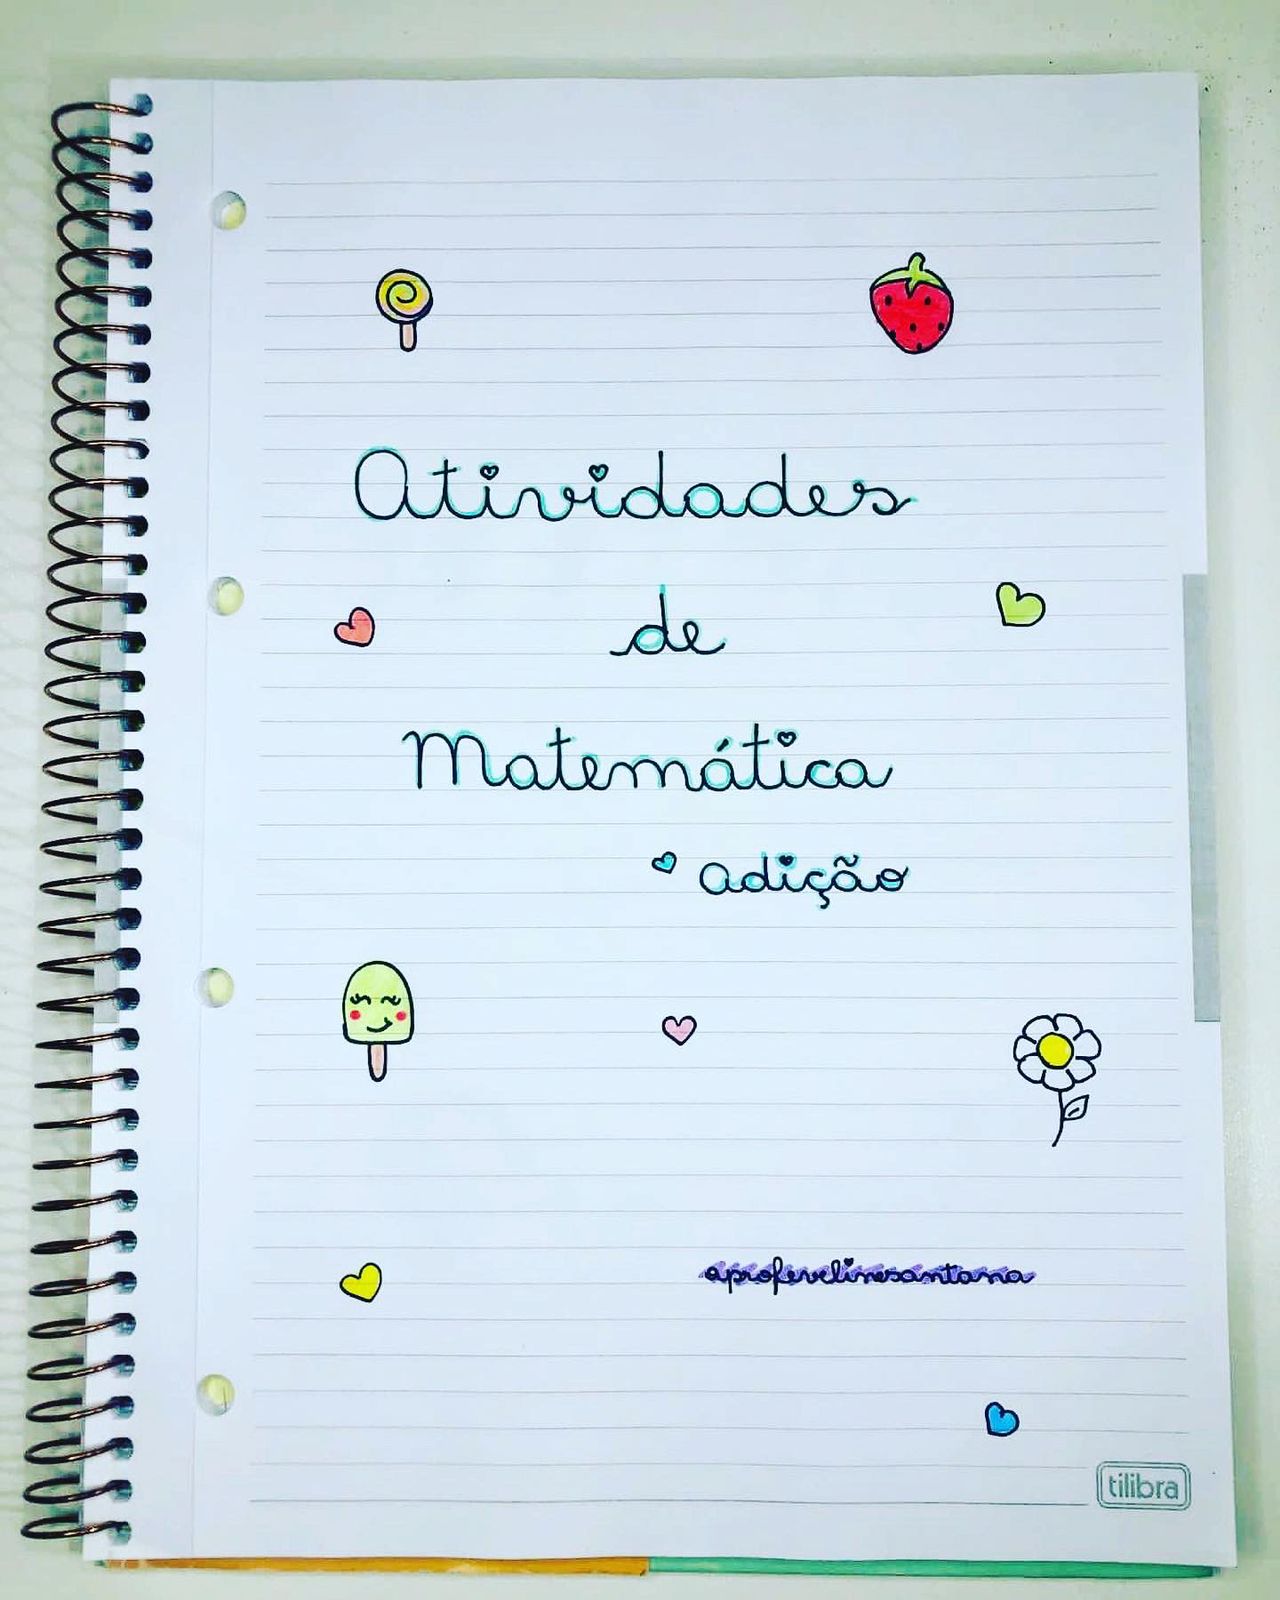 Atividades
de
Matemática
adição
aprofevelinesantana
tilibra